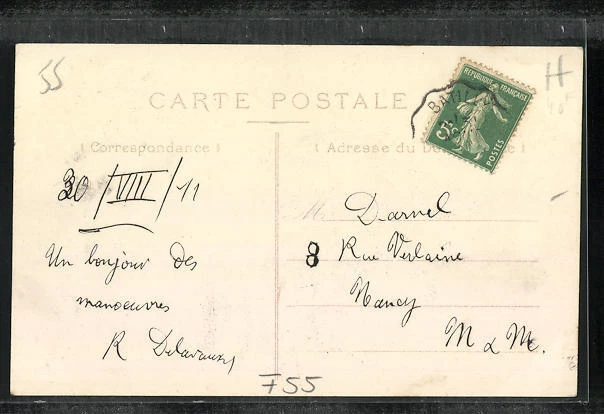 55
H
CARTE POSTALE
REPUBLIQUE FRANÇAISE
5c
POSTES
( Correspondance )
( Adresse du
30/VIII/11
Un bonjour des
manoeuvres
R Delavaux
M Darnel
8 Rue Verlaine
Nancy
M & M.
F55